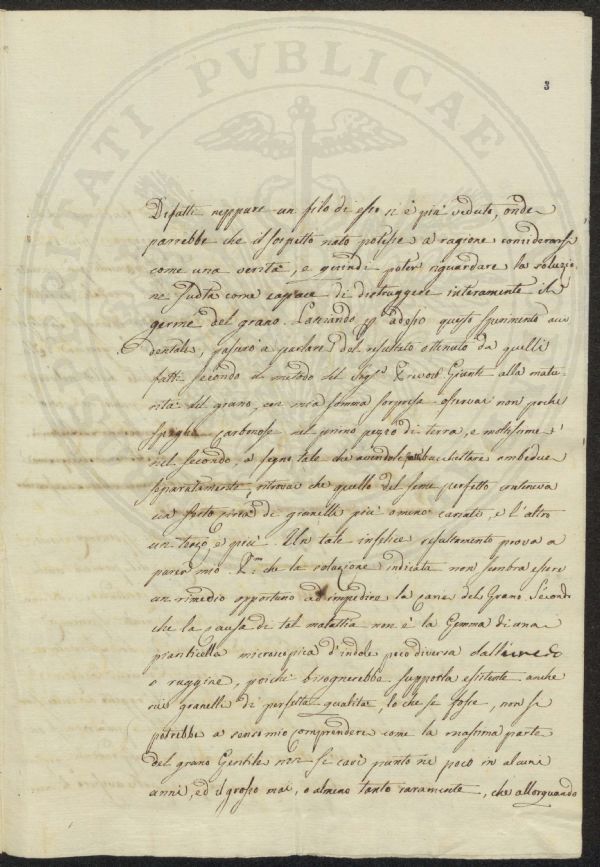 3
Difatti neppure un filo di esso si è più veduto, onde
parrebbe che il sospetto nato potesse a ragione considerarsi
come una verità, e quindi poter riguardare la soluzio
ne sud.ta come capace di distruggere interamente il
germe del grano. Lasciando p adesso questo sperimento acci
dentale, passerò a parlare del resultato ottenuto da quelli
fatti secondo il metodo del Sig.r Giunti alla matu
rità del grano, con mia somma sorpresa osservai non poche
spighe carbonose nel primo pezzo di terra, e moltissime
nel secondo, a segno tale che avendole fatte bacchettare ambedue
separatamente, ritrovai che quello del seme perfetto conteneva
un sesto circa di granelli più o meno cariati, e l'altro
un terzo, e più. Un tale infelice resultamento prova a
parer mio P.mo che la soluzione indicata non sembra essere
un rimedio opportuno ad impedire la carie del Grano. Secondo
che la causa di tal malattia non è la Gemma di una
pianticella microscopica d'indole poco diversa dall'uredo
o ruggine, poichè bisognerebbe supporla esistente anche
nei granelli di perfetta qualità, lo che se fosse, non si
potrebbe a senso mio comprendere come la massima parte
del grano Gentile non si cari punto nè poco in alcuni
anni, ed il grosso mai, o almeno tanto raramente, che allorquando
PIETATI PVBLICAE